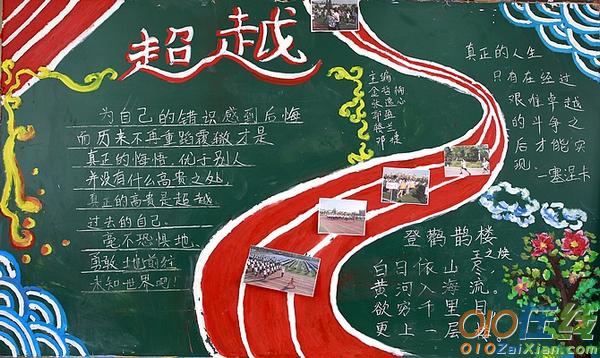 超越
为自己的错误感到后悔
而历来不再重蹈覆辙才是
真正的悔悟.优于别人
并没有什么高贵之处,
真正的高贵是超越
过去的自己.
毫不恐惧地、
勇敢地前往
未知世界吧!
主编
真正的人生
只有在经过
艰难卓越
的斗争之
后才能实
现.
—塞涅卡
登鹳鹊楼
王之涣
白日依山尽,
黄河入海流。
欲穷千里目
更上一层
010在线
010ZaiXian.com